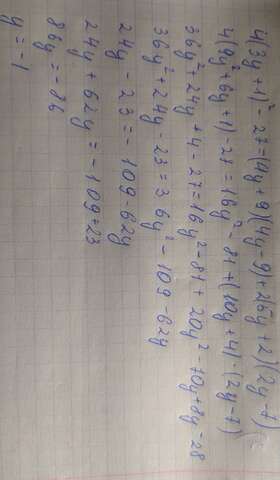 4(3y+1)²-27=(4y+9)(4y-9)+2(5y+2)(2y-7)
4(9y²+6y+1)-27=16y²-81+(10y+4)·(2y-7)
36y²+24y+4-27=16y²-81+20y²-70y+8y-28
36y²+24y-23=36y²-109-62y
24y-23=-109-62y
24y+62y=-109+23
86y=-86
y=-1